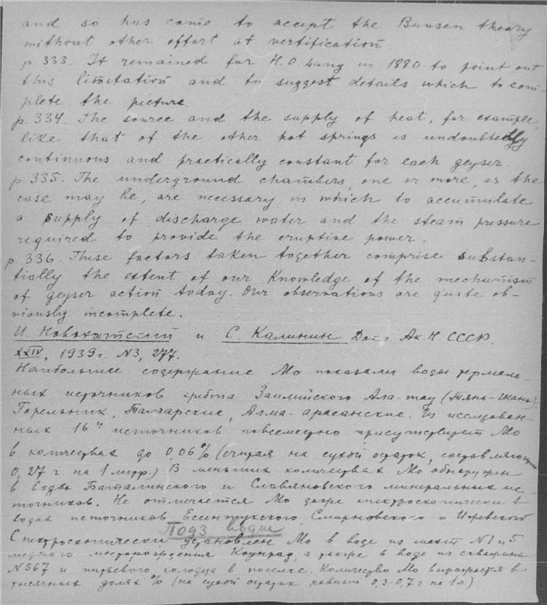 and so has come to accept the Bunsen theory
without other effort at vertification
p 333. It remained for H.O Lang in 1880 to point out
this limitation and to suggest details which to com-
plete the picture
p. 334. The source and the supply of heat, for example,
like that of the other hot springs is undoubtedly
continuous and practically constant for each geyser
p. 335. The underground chambers, one or more, as the
case may be, are necessary in which to accumulate
a supply of discharge water and the steam pressure
required to provide the eruptive power.
p. 336. These factors taken together comprise substan-
tially the extent of our knowledge of the mechanism
of geyser action today. Our observations are quite ob-
viously incomplete.
И. Новохатский и С. Калинин Док. Ак. Н СССР.
XXIV, 1939 г. N3, 277.
Наибольшее содержание Mo показали воды термаль-
ных источников хребта Заилийского Ала-тау (Тянь-шань)
Горельник, Талгарские, Алма-арасанские. Из исследован-
ных 16и источников повсеместно присутствует Mo
в количествах до 0,06% (считая на сухой остаток, составляющий
0,27 г на 1 литр.) В меньших количествах Mo обнаружен
в водах Баталинского и Славяновского минеральных ис-
точников. Не отмечается Mo даже спектроскопически в
водах источников Ессентукского, Смирновского и
Подз воды
Спектроскопически установлен Mo в воде из шахт N1 и 5
медного месторождения Коунрад, а также в воде из скважины
N567 и питьевого колодца в поселке Количество Mo выражается в
тысячных долях % (на сухой остаток равный 0,3-0,7 г. на 1 л)